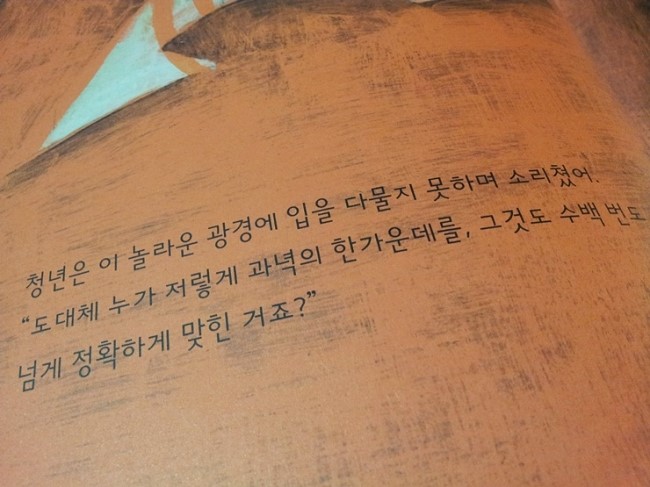 청년은 이 놀라운 광경에 입을 다물지 못하며 소리쳤어.
“도대체 누가 저렇게 과녁의 한가운데를, 그것도 수백 번도
넘게 정확하게 맞힌 거죠?”